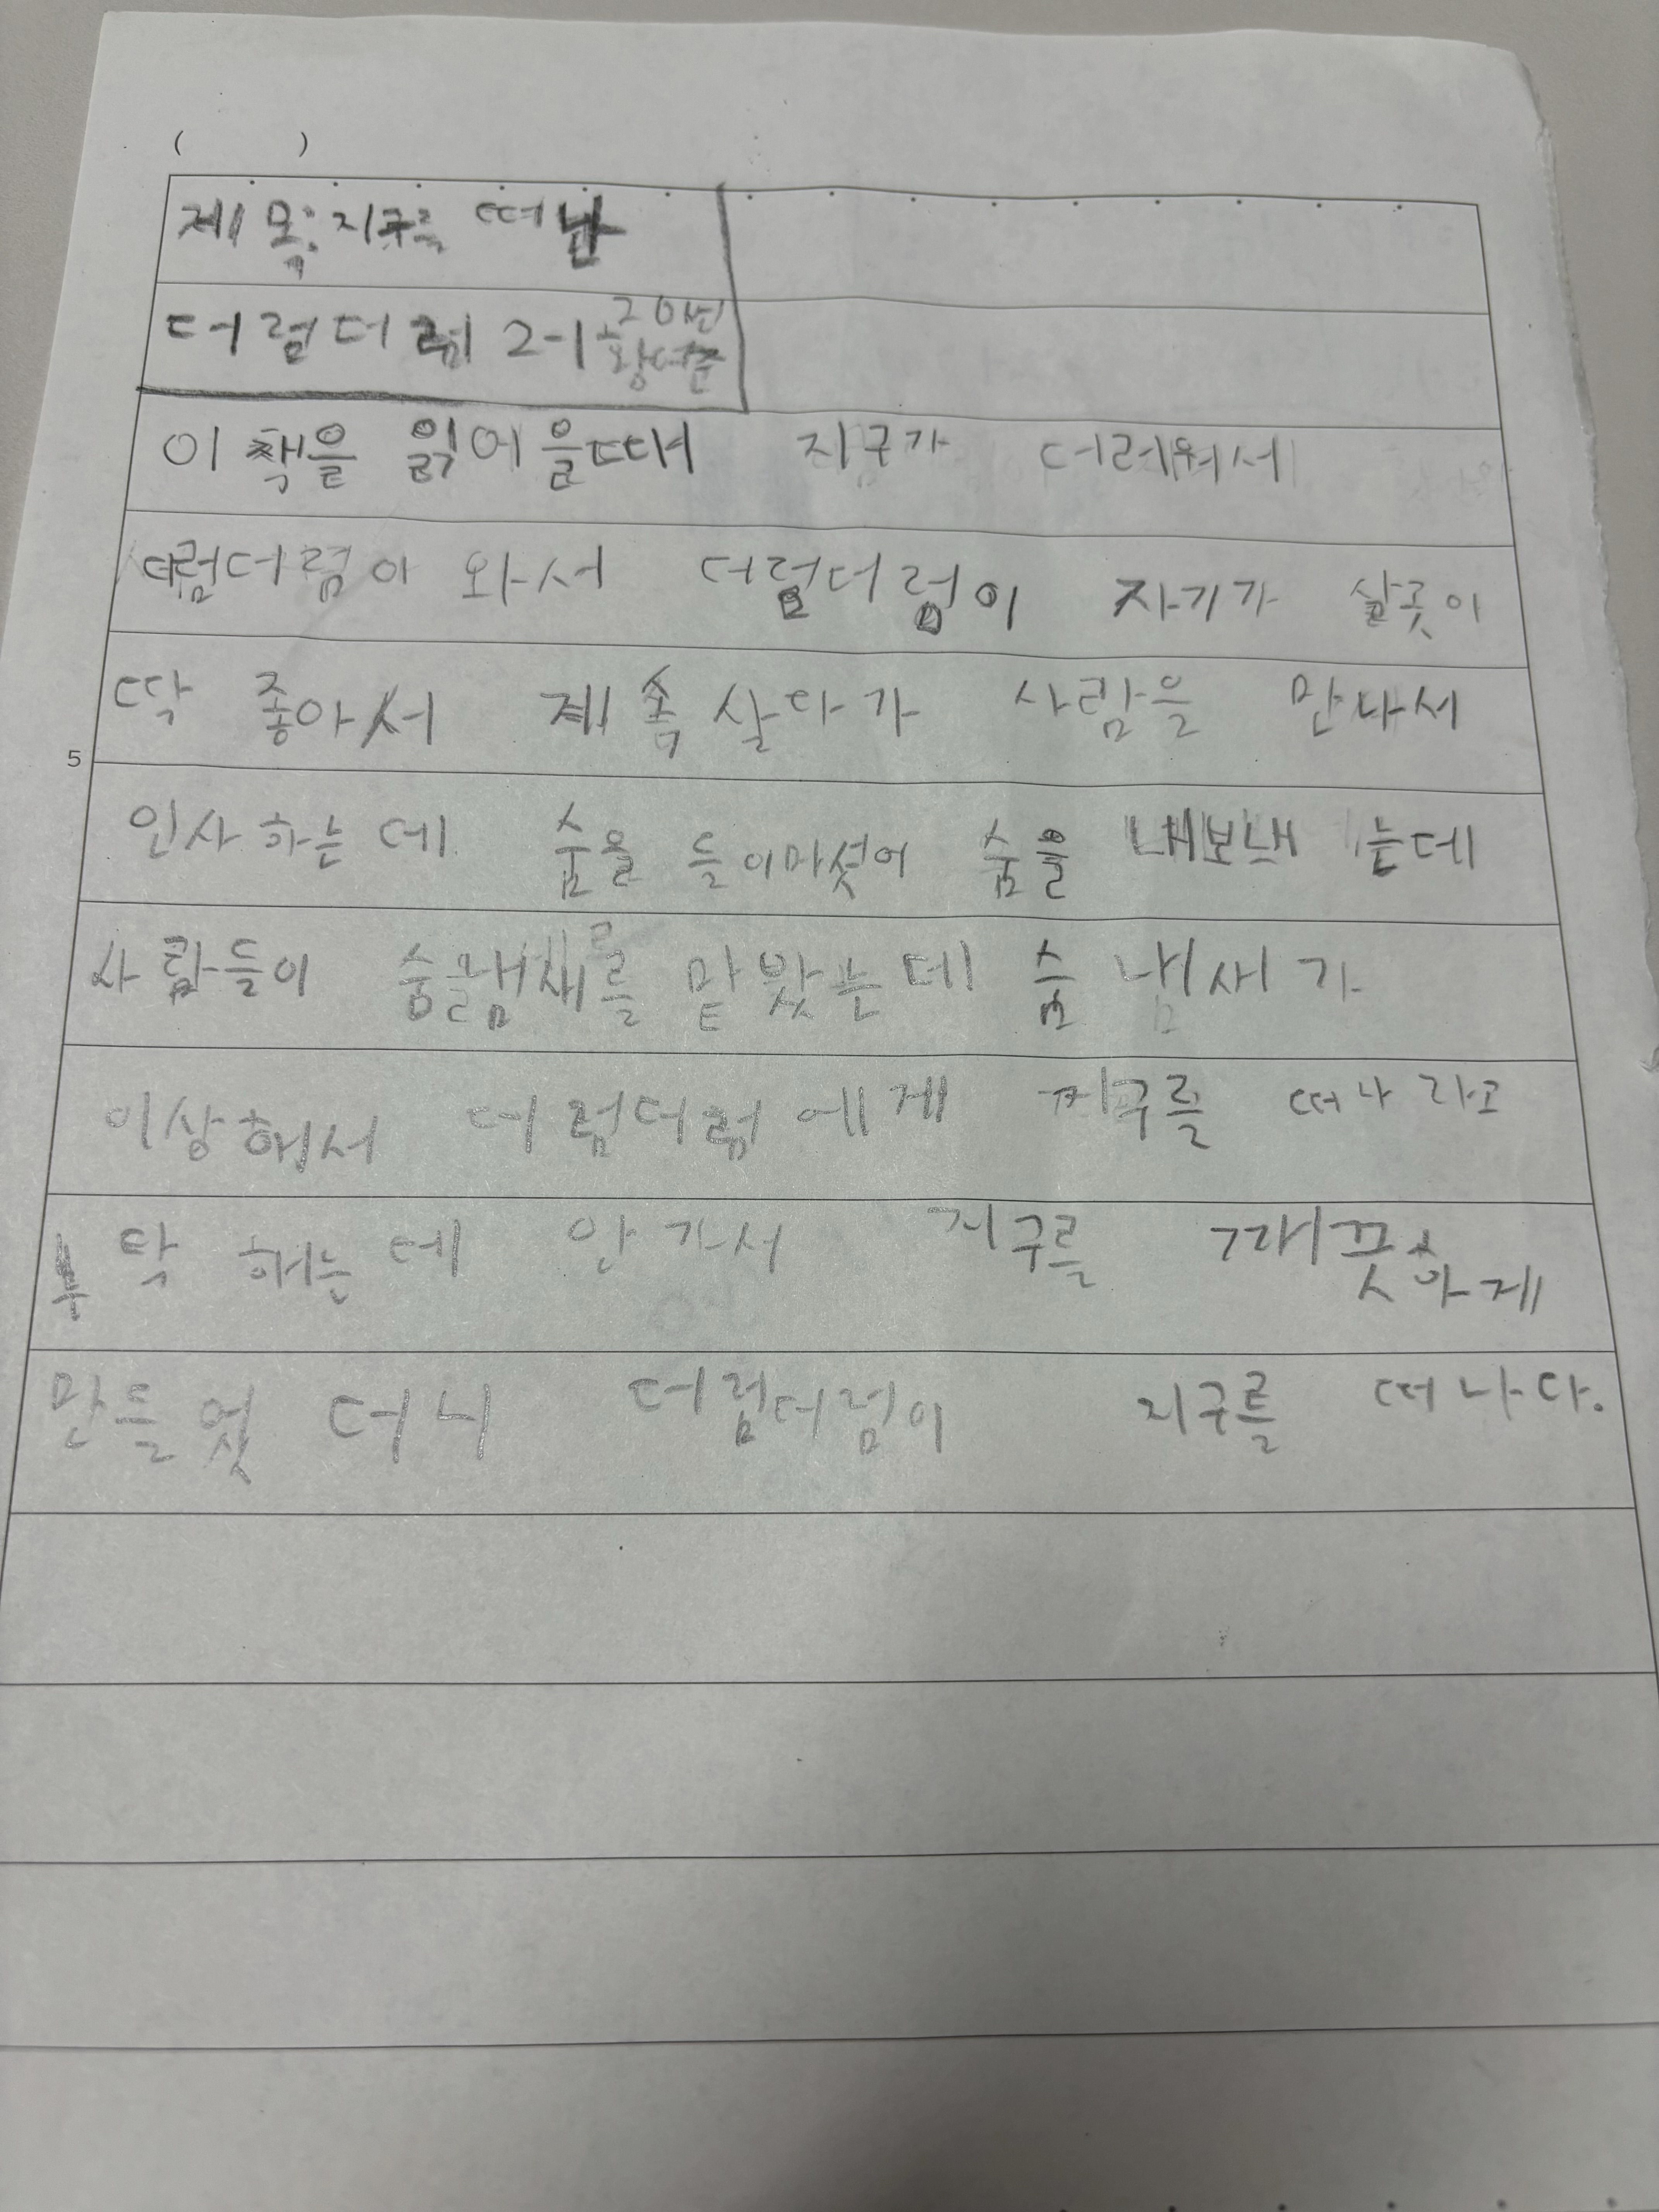 ( )
제목: 지구를 떠난
더럼더럼 2-1 20번
이 책을 읽어을때 지구가 더러워서
더럼더럼이 와서 더럼더럼이 자기가 살곳이
딱 좋아서 계속 살다가 사람을 만나서
5
인사하는데 숨을 들이마셧어 숨을 내보내는데
사람들이 숨냄새를 맡봤는데 숨 냄새가
이상해서 더럼더럼에게 지구를 떠나라고
부탁 해는데 안 가서 지구를 깨끗하게
만들엇더니 더럼더럼이 지구를 떠나다.